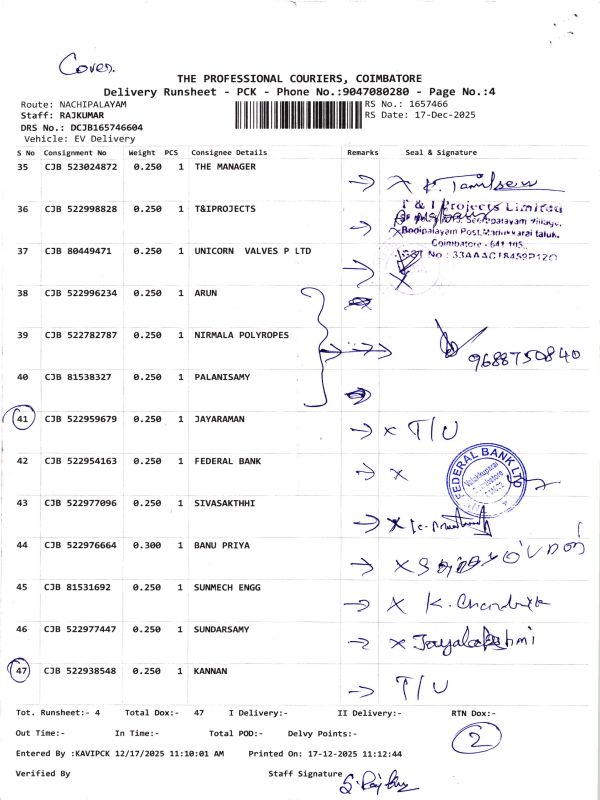 Cover.
THE PROFESSIONAL COURIERS, COIMBATORE
Delivery Runsheet - PCK - Phone No.:9047080280 - Page No.:4
Route: NACHIPALAYAM RS No.: 1657466
Staff: RAJKUMAR RS Date: 17-Dec-2025
DRS No.: DCJB165746604
Vehicle: EV Delivery
S No Consignment No Weight PCS Consignee Details Remarks Seal & Signature
35 CJB 523024872 0.250 1 THE MANAGER → x K. Tamilselvi
36 CJB 522998828 0.250 1 T&IPROJECTS → x
T & I Projects Limited
Village,
Bodipalayam Post, Madukkarai taluk,
Coimbatore - 641 105.
37 CJB 80449471 0.250 1 UNICORN VALVES P LTD → x
GST No : 33AAACT8459P1ZO
38 CJB 522996234 0.250 1 ARUN
39 CJB 522782787 0.250 1 NIRMALA POLYROPES → → 9688750840
40 CJB 81538327 0.250 1 PALANISAMY
41 CJB 522959679 0.250 1 JAYARAMAN → x T/U
42 CJB 522954163 0.250 1 FEDERAL BANK → x
FEDERAL BANK LTD
Coimbatore
43 CJB 522977096 0.250 1 SIVASAKTHHI → x
44 CJB 522976664 0.300 1 BANU PRIYA → x
45 CJB 81531692 0.250 1 SUNMECH ENGG → x K. Chandrika
46 CJB 522977447 0.250 1 SUNDARSAMY → x Jayalakshmi
47 CJB 522938548 0.250 1 KANNAN → T/U
Tot. Runsheet:- 4 Total Dox:- 47 I Delivery:- II Delivery:- RTN Dox:-
Out Time:- In Time:- Total POD:- Delvy Points:- 2
Entered By :KAVIPCK 12/17/2025 11:10:01 AM Printed On: 17-12-2025 11:12:44
Verified By Staff Signature